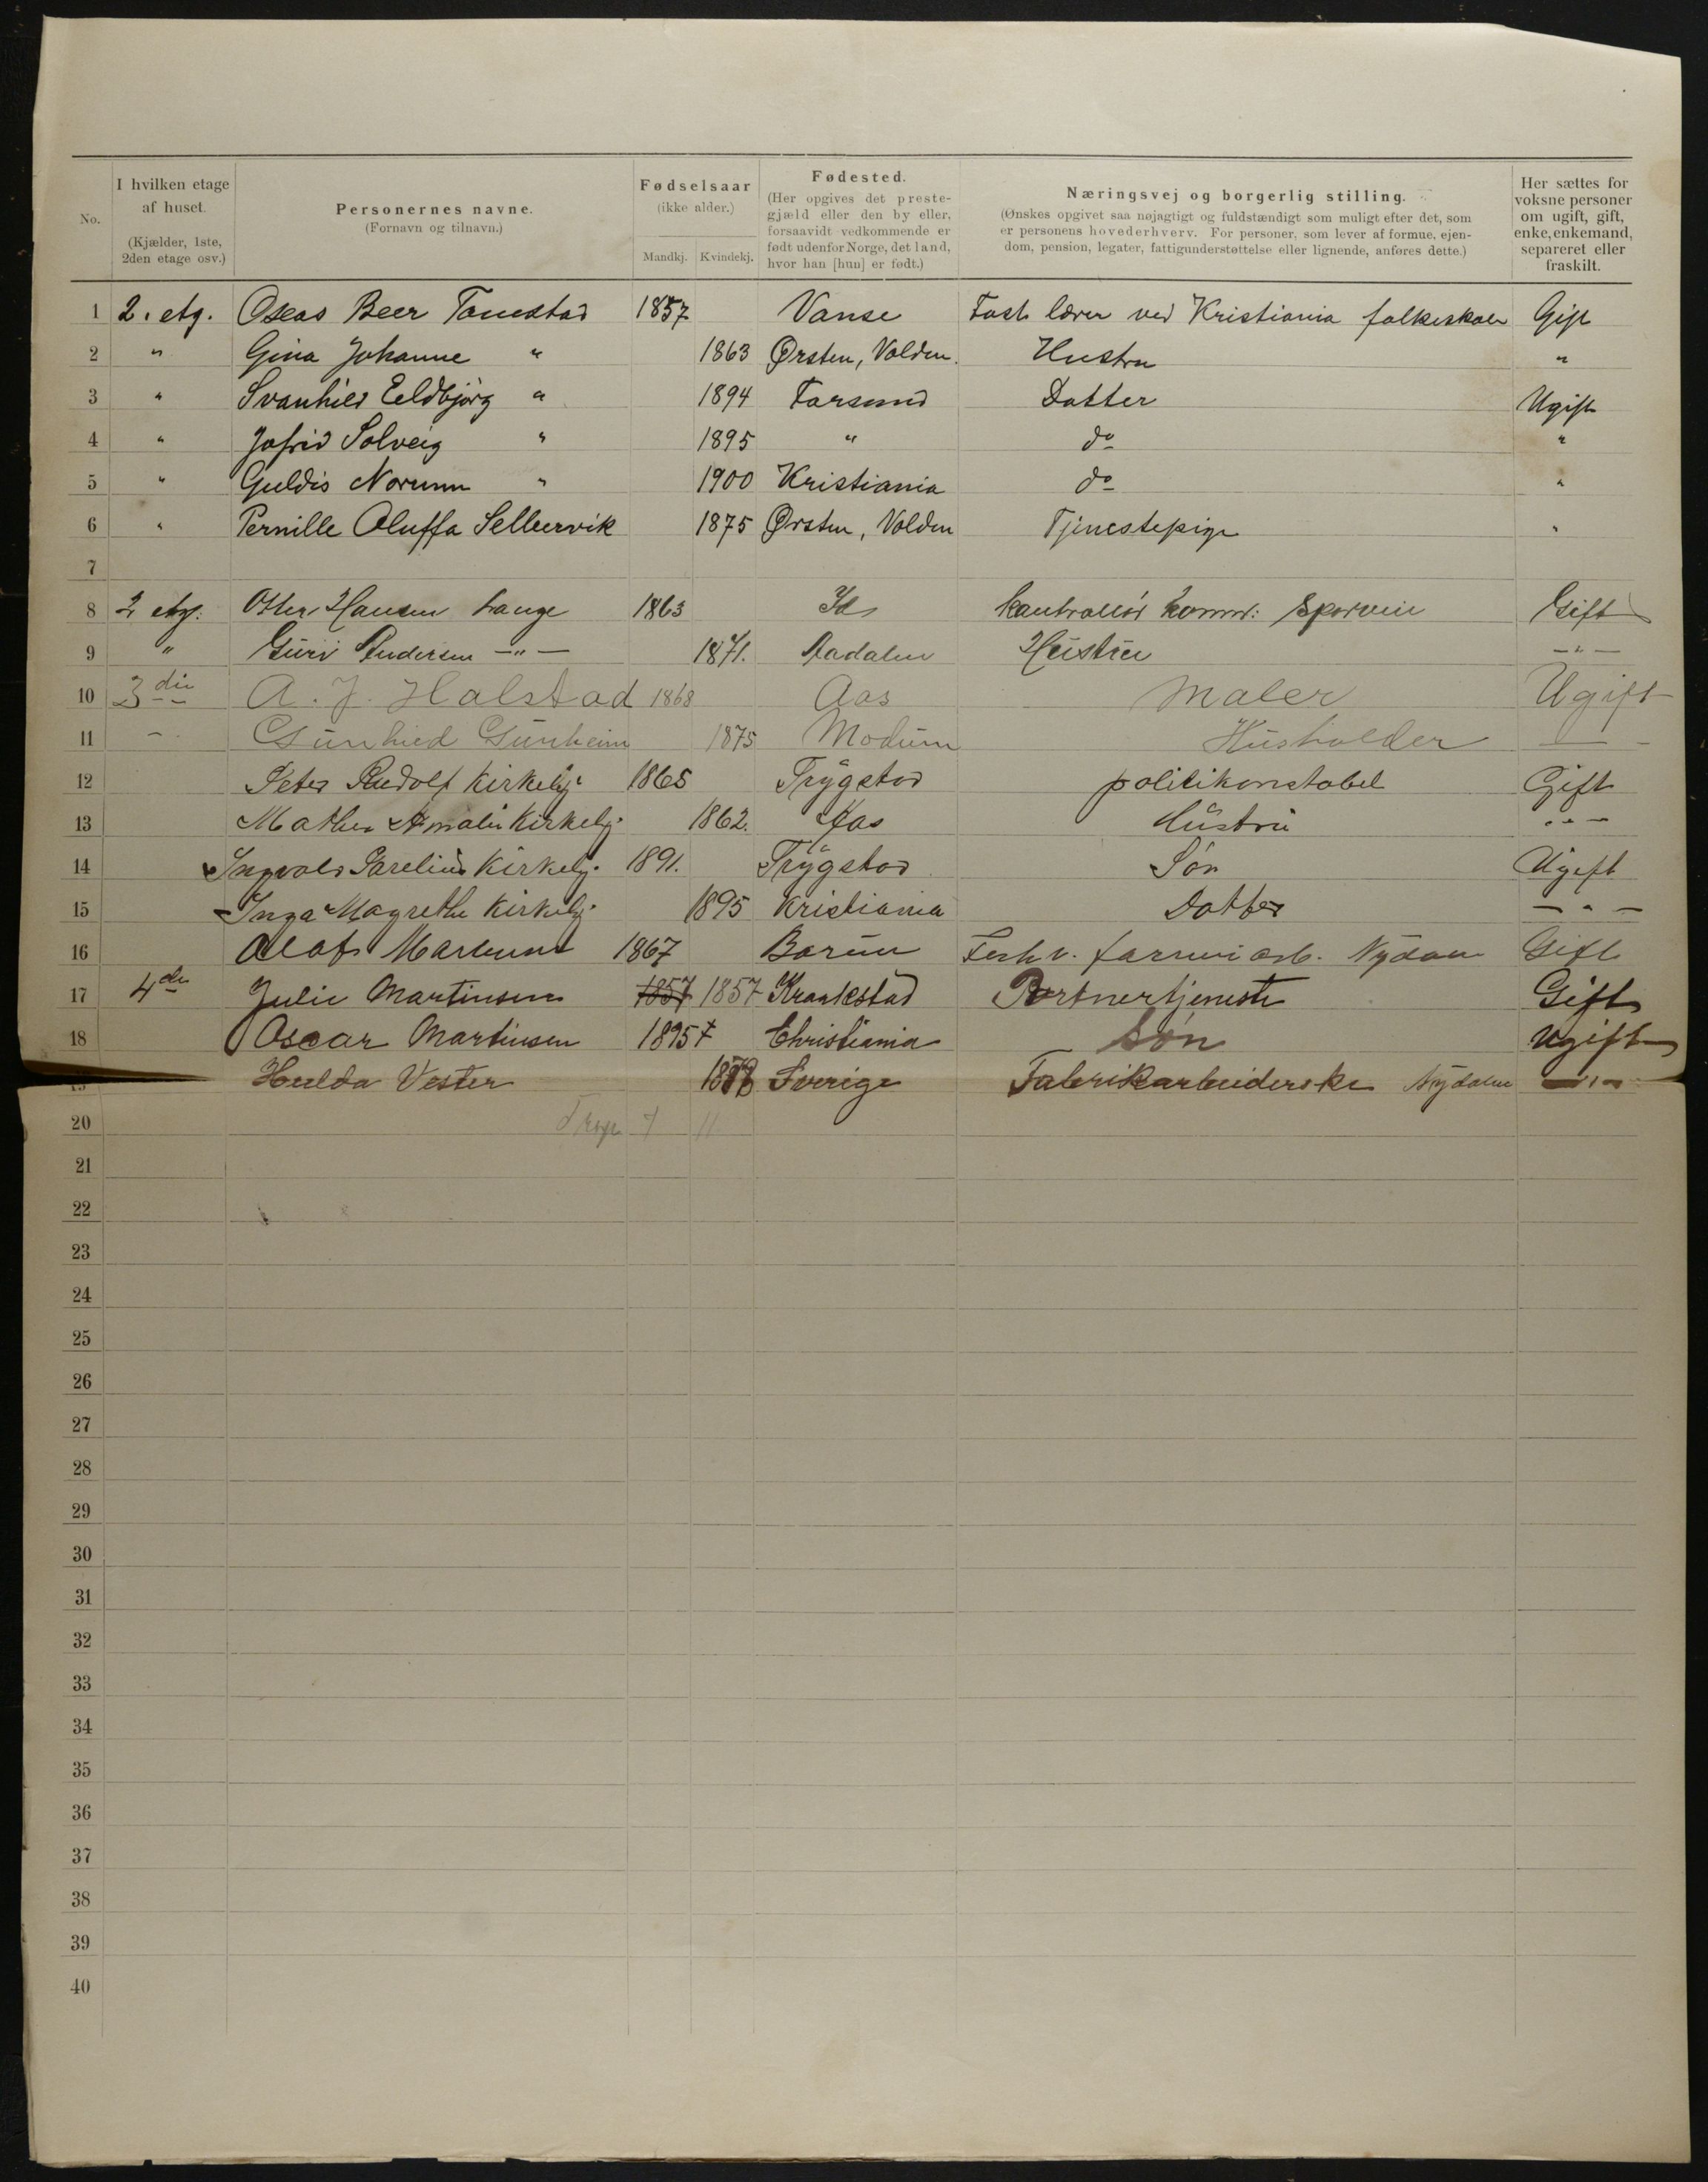 No.
I hvilken etage
af huset.
(Kjælder, 1ste,
2den etage osv.)
Personernes navne.
(Fornavn og tilnavn.)
Fødselsaar
(ikke alder.)
Mandkj. Kvindekj.
Fødested.
(Her opgives det preste-
gjæld eller den by eller,
forsaavidt vedkommende er
født udenfor Norge, det land,
hvor han [hun] er født.)
Næringsvej og borgerlig stilling.
(Ønskes opgivet saa nøjagtigt og fuldstændigt som muligt efter det, som
er personens hovederhverv. For personer, som lever af formue, ejen-
dom, pension, legater, fattigunderstøttelse eller lignende, anføres dette.)
Her sættes for
voksne personer
om ugift, gift,
enke, enkemand,
separeret eller
fraskilt.
1 2. etg. Oseas Beer Tanestad 1857 Vanse Fast lærer ved Kristiania folkeskoler Gift
2 " Gina Johanne " 1863 Ørsten, Volden. Hustru "
3 " Svanhild Eeldbjørg " 1894 Farsund Datter Ugift
4 " Jofrid Solveig " 1895 " do "
5 " Guldis Norunn " 1900 Kristiania do "
6 " Pernille Oluffa Sellervik 1875 Ørsten, Volden Tjenestepige "
7
8 2 etg: Hansen Lange 1863 Id Kontrollør komm: Sporveie Gift
9 " Guri Andersen —"— 1871. Aadalen Hustru —"—
10 3die A. J. Halstad 1868 Aas Maler Ugift
11 — Gunhild Gunheim 1875 Modum Husholder —
12 Peter Rudolf Kirkeby 1865 Trygstad politikonstabel Gift
13 Mathea Amalie Kirkeby. 1862. Aas Hustru —"—
14 Ingvald Parelius Kirkeby. 1891. Trygstad Søn Ugift
15 Inga Magrethe Kirkeby. 1895 Kristiania Datter — " —
16 Olaf 1867 Bærum farveriarb. Nydalen Gift
17 4de Julie Martinsen 1857 1857 Kraakstad Portnertjeneste Gift
18 Oscar Martinsen 1895 Christiania Søn Ugift
19 Hulda Vester Sverige Fabrikarbeiderske Nydalen —"—
20 7 11
21
22
23
24
25
26
27
28
29
30
31
32
33
34
35
36
37
38
39
40